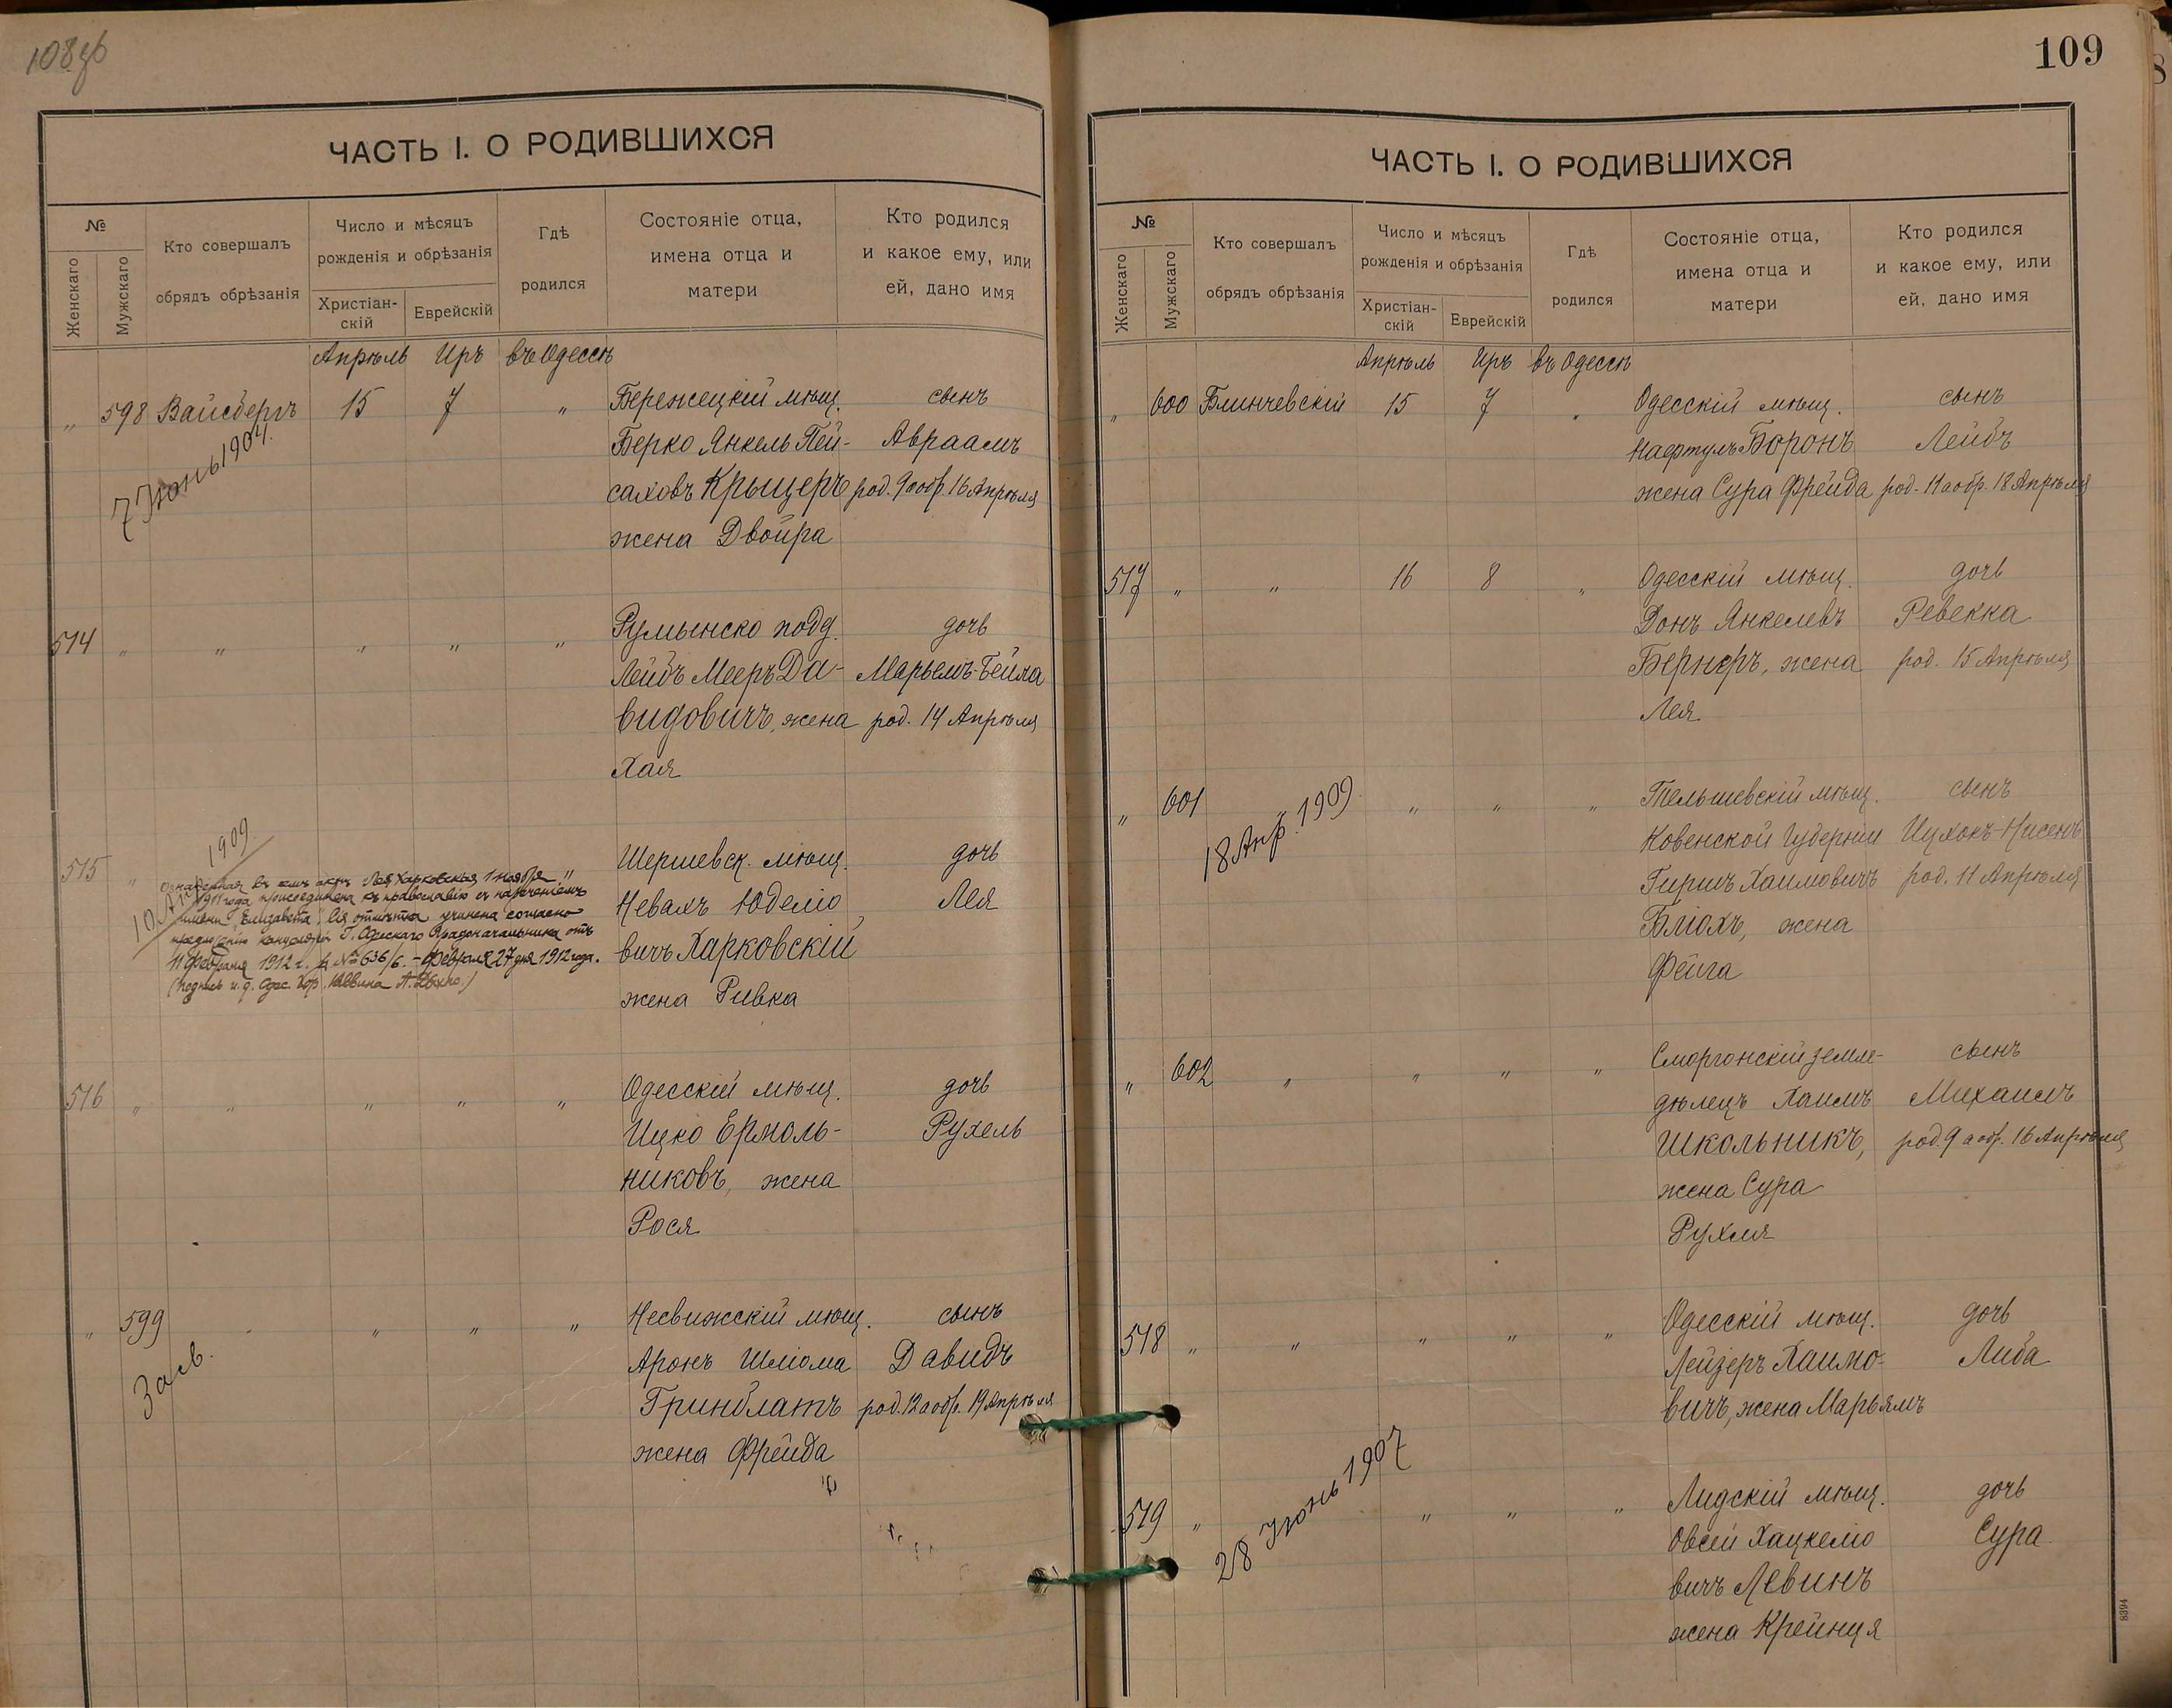 108об
ЧАСТЬ I. О РОДИВШИХСЯ
№
Женскаго
Мужскаго
Кто совершалъ
обрядъ обрѣзанія
Число и мѣсяцъ
рожденія и обрѣзанія
Христіан-
скій
Еврейскій
Гдѣ
родился
Состояніе отца,
имена отца и
матери
Кто родился
и какое ему, или
ей, дано имя
Апрѣль Иръ въ Одессѣ
„ 598 Вайсбергъ 15 7 „ Бережецкій мѣщ. сынъ
Берко Янкель Пей- Авраамъ
саховъ Крыщеръ род. 9 а обр. 16 Апрѣля
жена Двойра
7 Іюнь 1904.
514 „ „ „ „ „ Румынско подд. дочь
Лейбъ Мееръ Да- Марьемъ-Бейла
видовичъ, жена род. 14 Апрѣля
Хая
515 „ Шершевск. мѣщ. дочь
Невахъ Юделіо Лея
вичъ Харковскій
жена Ривка
10 Апр 1909
Означенная въ семъ актѣ Лея Харковская, 1 ноября
1911 года присоединена къ православію съ нареченіемъ
имени „Елизавета“. Сія отмѣтка учинена согласно
предложенію канцеляріи Г. Одесскаго Градоначальника отъ
11 февраля 1912 г. за № 636/6. – Февраля 27 дня 1912 года.
516 „ „ „ „ „ Одесскій мѣщ. дочь
Ицко Ермоль- Рухель
никовъ, жена
Рося
„ 599 „ „ „ „ Несвижскій мѣщ. сынъ
Аронъ Шліома Давидъ
Гринблатъ род. 12 а обр. 19 Апрѣля
жена Фрейда
Засв.
109
ЧАСТЬ I. О РОДИВШИХСЯ
№
Женскаго
Мужскаго
Кто совершалъ
обрядъ обрѣзанія
Число и мѣсяцъ
рожденія и обрѣзанія
Христіан-
скій
Еврейскій
Гдѣ
родился
Состояніе отца,
имена отца и
матери
Кто родился
и какое ему, или
ей, дано имя
Апрѣль Иръ въ Одессѣ
„ 600 Блинчевскій 15 7 „ Одесскій мѣщ. сынъ
Нафтулъ Боронъ Лейбъ
жена Сура Фрейда род. 11 а обр. 18 Апрѣля
517 „ „ 16 8 „ Одесскій мѣщ. дочь
Донъ Янкелевъ Ревекка
Бернеръ, жена род. 15 Апрѣля
Лея
„ 601 „ „ „ „ Тельшевскій мѣщ. сынъ
Ковенской Губерніи Ицхокъ-Нисенъ
Гиршъ Хаимовичъ род. 11 Апрѣля
Бліохъ, жена
Фейга
18 Апр. 1909
„ 602 „ „ „ „ Сморгонскій земле- сынъ
дѣлецъ Хаимъ Михаилъ
Школьникъ, род. 9 а обр. 16 Апрѣля
жена Сура
Рухля
518 „ „ „ „ „ Одесскій мѣщ. дочь
Лейзеръ Хаимо- Либа
вичъ, жена Марьямъ
519 „ „ „ „ Лидскій мѣщ. дочь
Овсей Хацкеліо Сура
вичъ Левинъ
жена Крейнця
28 Іюнь 1907
8394